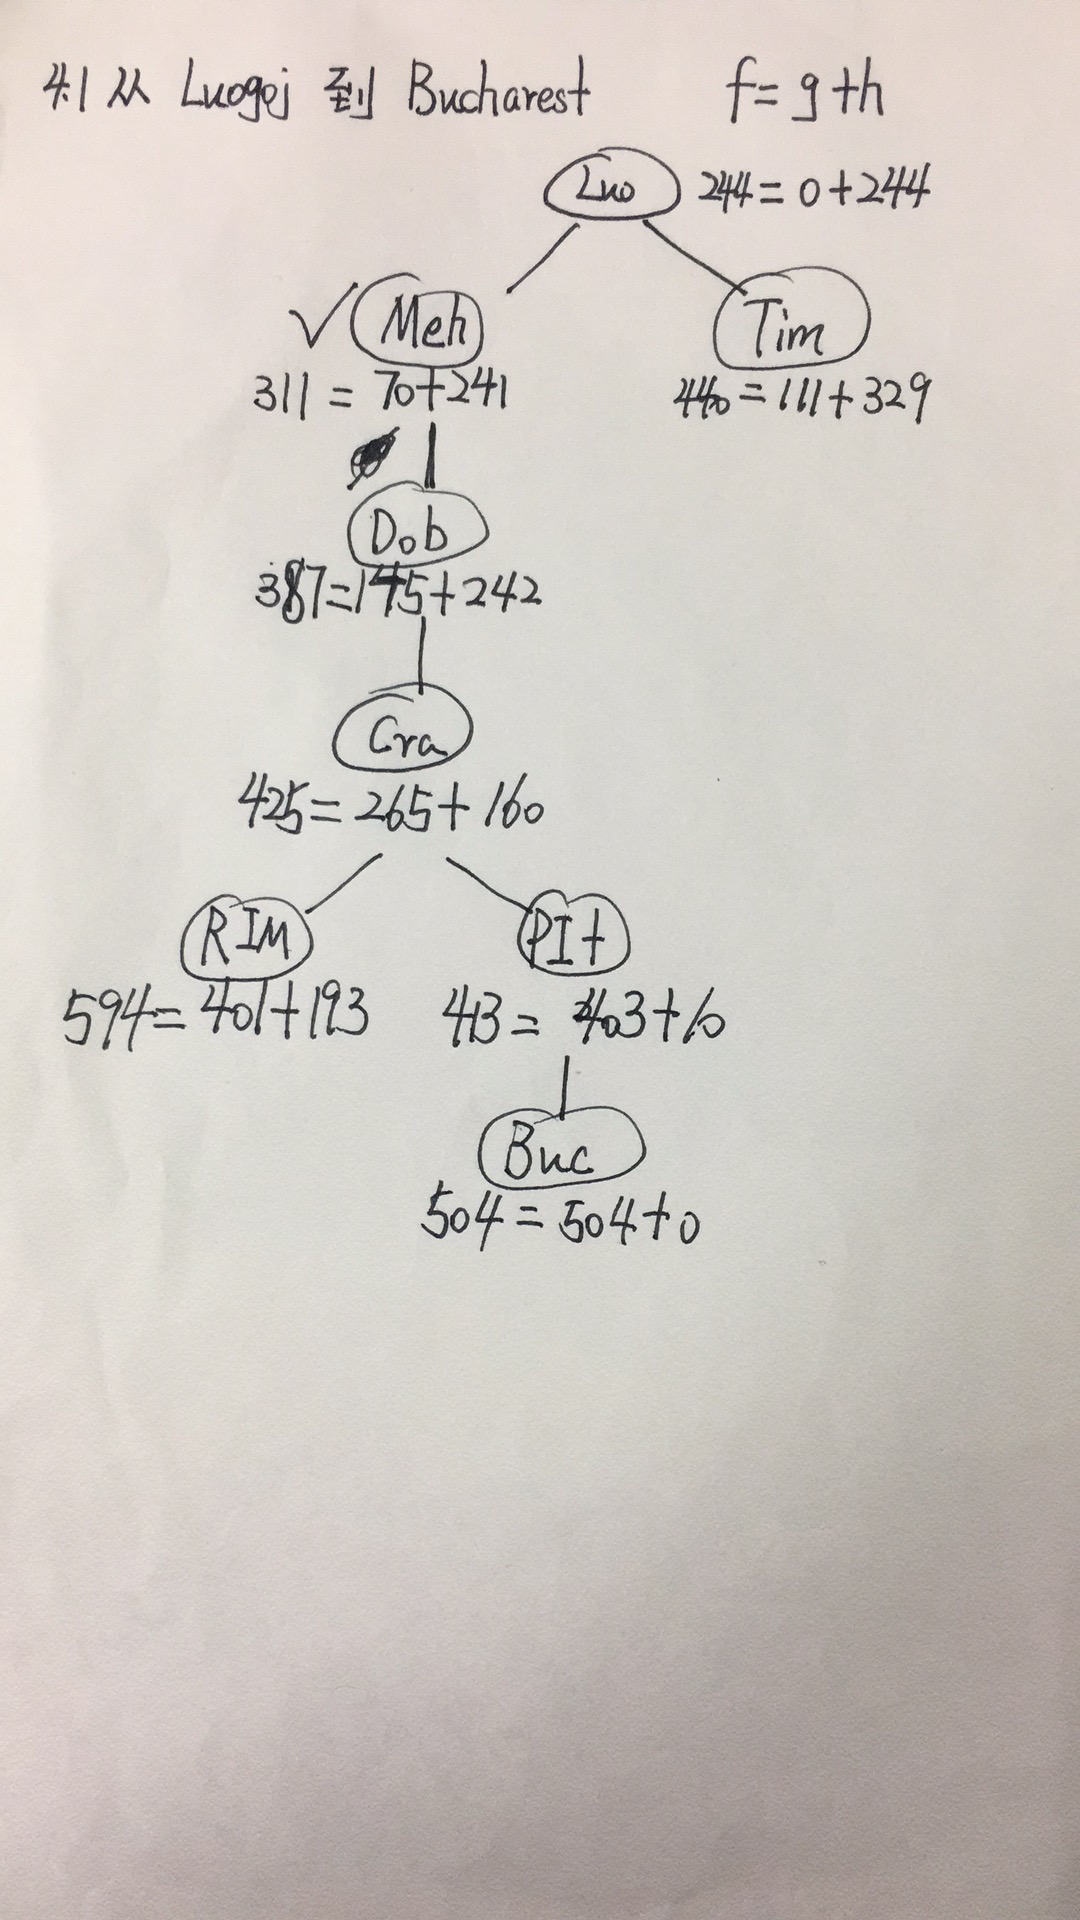 4.1 从 Luogoj 到 Bucharest f=g+h
Luo 244=0+244
Meh Tim
311=70+241 440=111+329
Dob
387=145+242
Cra
425=265+160
RIM PIt
594=401+193 413=403+10
Buc
504=504+0